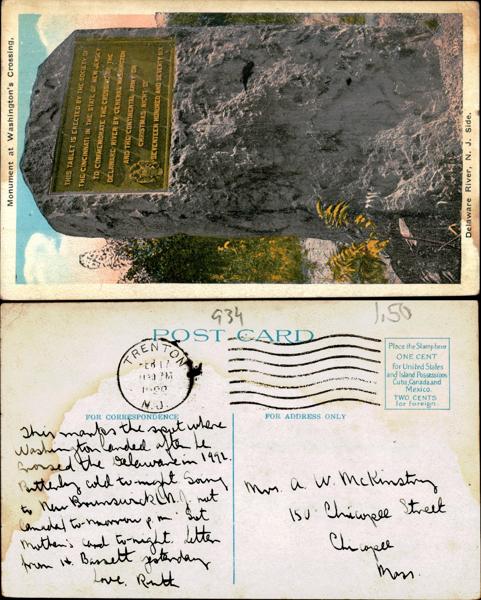 Monument at Washington's Crossing.
THIS TABLET IS ERECTED BY THE SOCIETY OF
THE CINCINNATI IN THE STATE OF NEW JERSEY
TO COMMEMORATE THE CROSSING OF THE
DELAWARE RIVER BY GENERAL WASHINGTON
AND THE CONTINENTAL ARMY ON
CHRISTMAS NIGHT OF
SEVENTEEN HUNDRED AND SEVENTY SIX
Delaware River, N. J. Side.
934
1.50
POST CARD
TRENTON
N.J.
Place the Stamp here
ONE CENT
for United States
and Island Possessions
Cuba, Canada and
Mexico.
TWO CENTS
for foreign.
FOR CORRESPONDENCE
FOR ADDRESS ONLY
This marks the spot where
Washington landed after he
crossed the Delaware in
cold to-night. Going
to New Brunswick N.J. not
to-morrow p.m. Got
Mother's card to-night. Letter
from H. Bassett yesterday
Love, Ruth
Mrs. A. W. McKinstry
150 Chicopee Street
Chicopee
Mass.